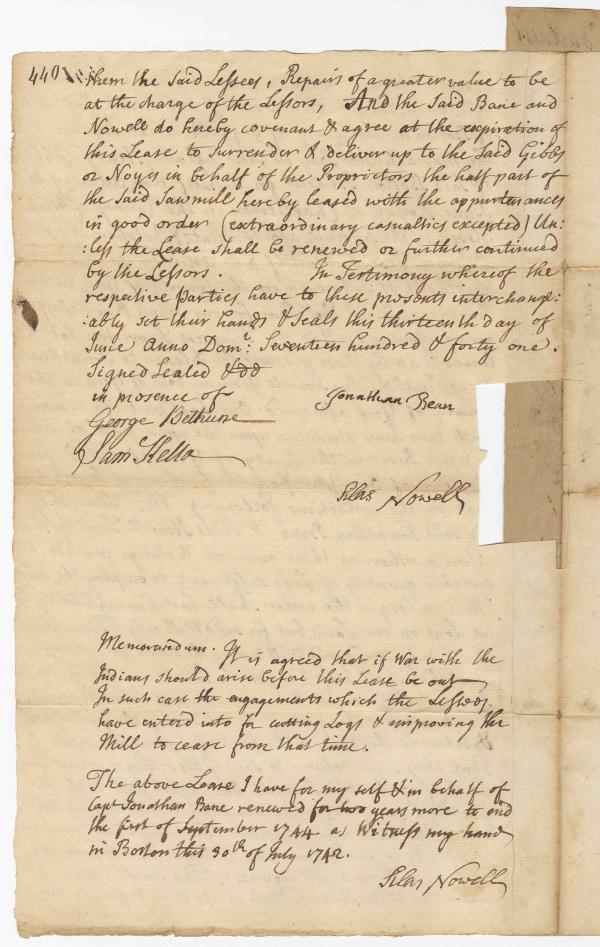 440
them the Said Lessees, Repairs of a greater value to be
at the charge of the Lessors, And the Said Bane and
Nowell do hereby covenant & agree at the expiration of
this Lease to Surrender & deliver up to the Said Gibbs
or Noyes in behalf of the Proprietors the half part of
the Said Sawmill hereby leased with the appurtenances
in good order (extraordinary casualties excepted) Un:
:less the Lease shall be renewed or further continued
by the Lessors. In Testimony whereof the
respective Parties have to these presents interchange:
:ably set their hands & Seals this thirteenth day of
June Anno Dom.: Seventeen hundred & forty one.
Signed Sealed & dd
in presence of
Jonathan Bean
George Bethune
Sam Kella
Silas Nowell
Memorandum. It is agreed that if War with the
Indians should arise before this Lease be out
In such case the engagements which the Lessees
have enterd into for cutting Logs & improving the
Mill to cease from that time.
The above Lease I have for my self & in behalf of
Capt Jonathan Bane renewed for two years more to end
the first of September 1744 as Witness my hand
in Boston this 30th of July 1742.
Silas Nowell